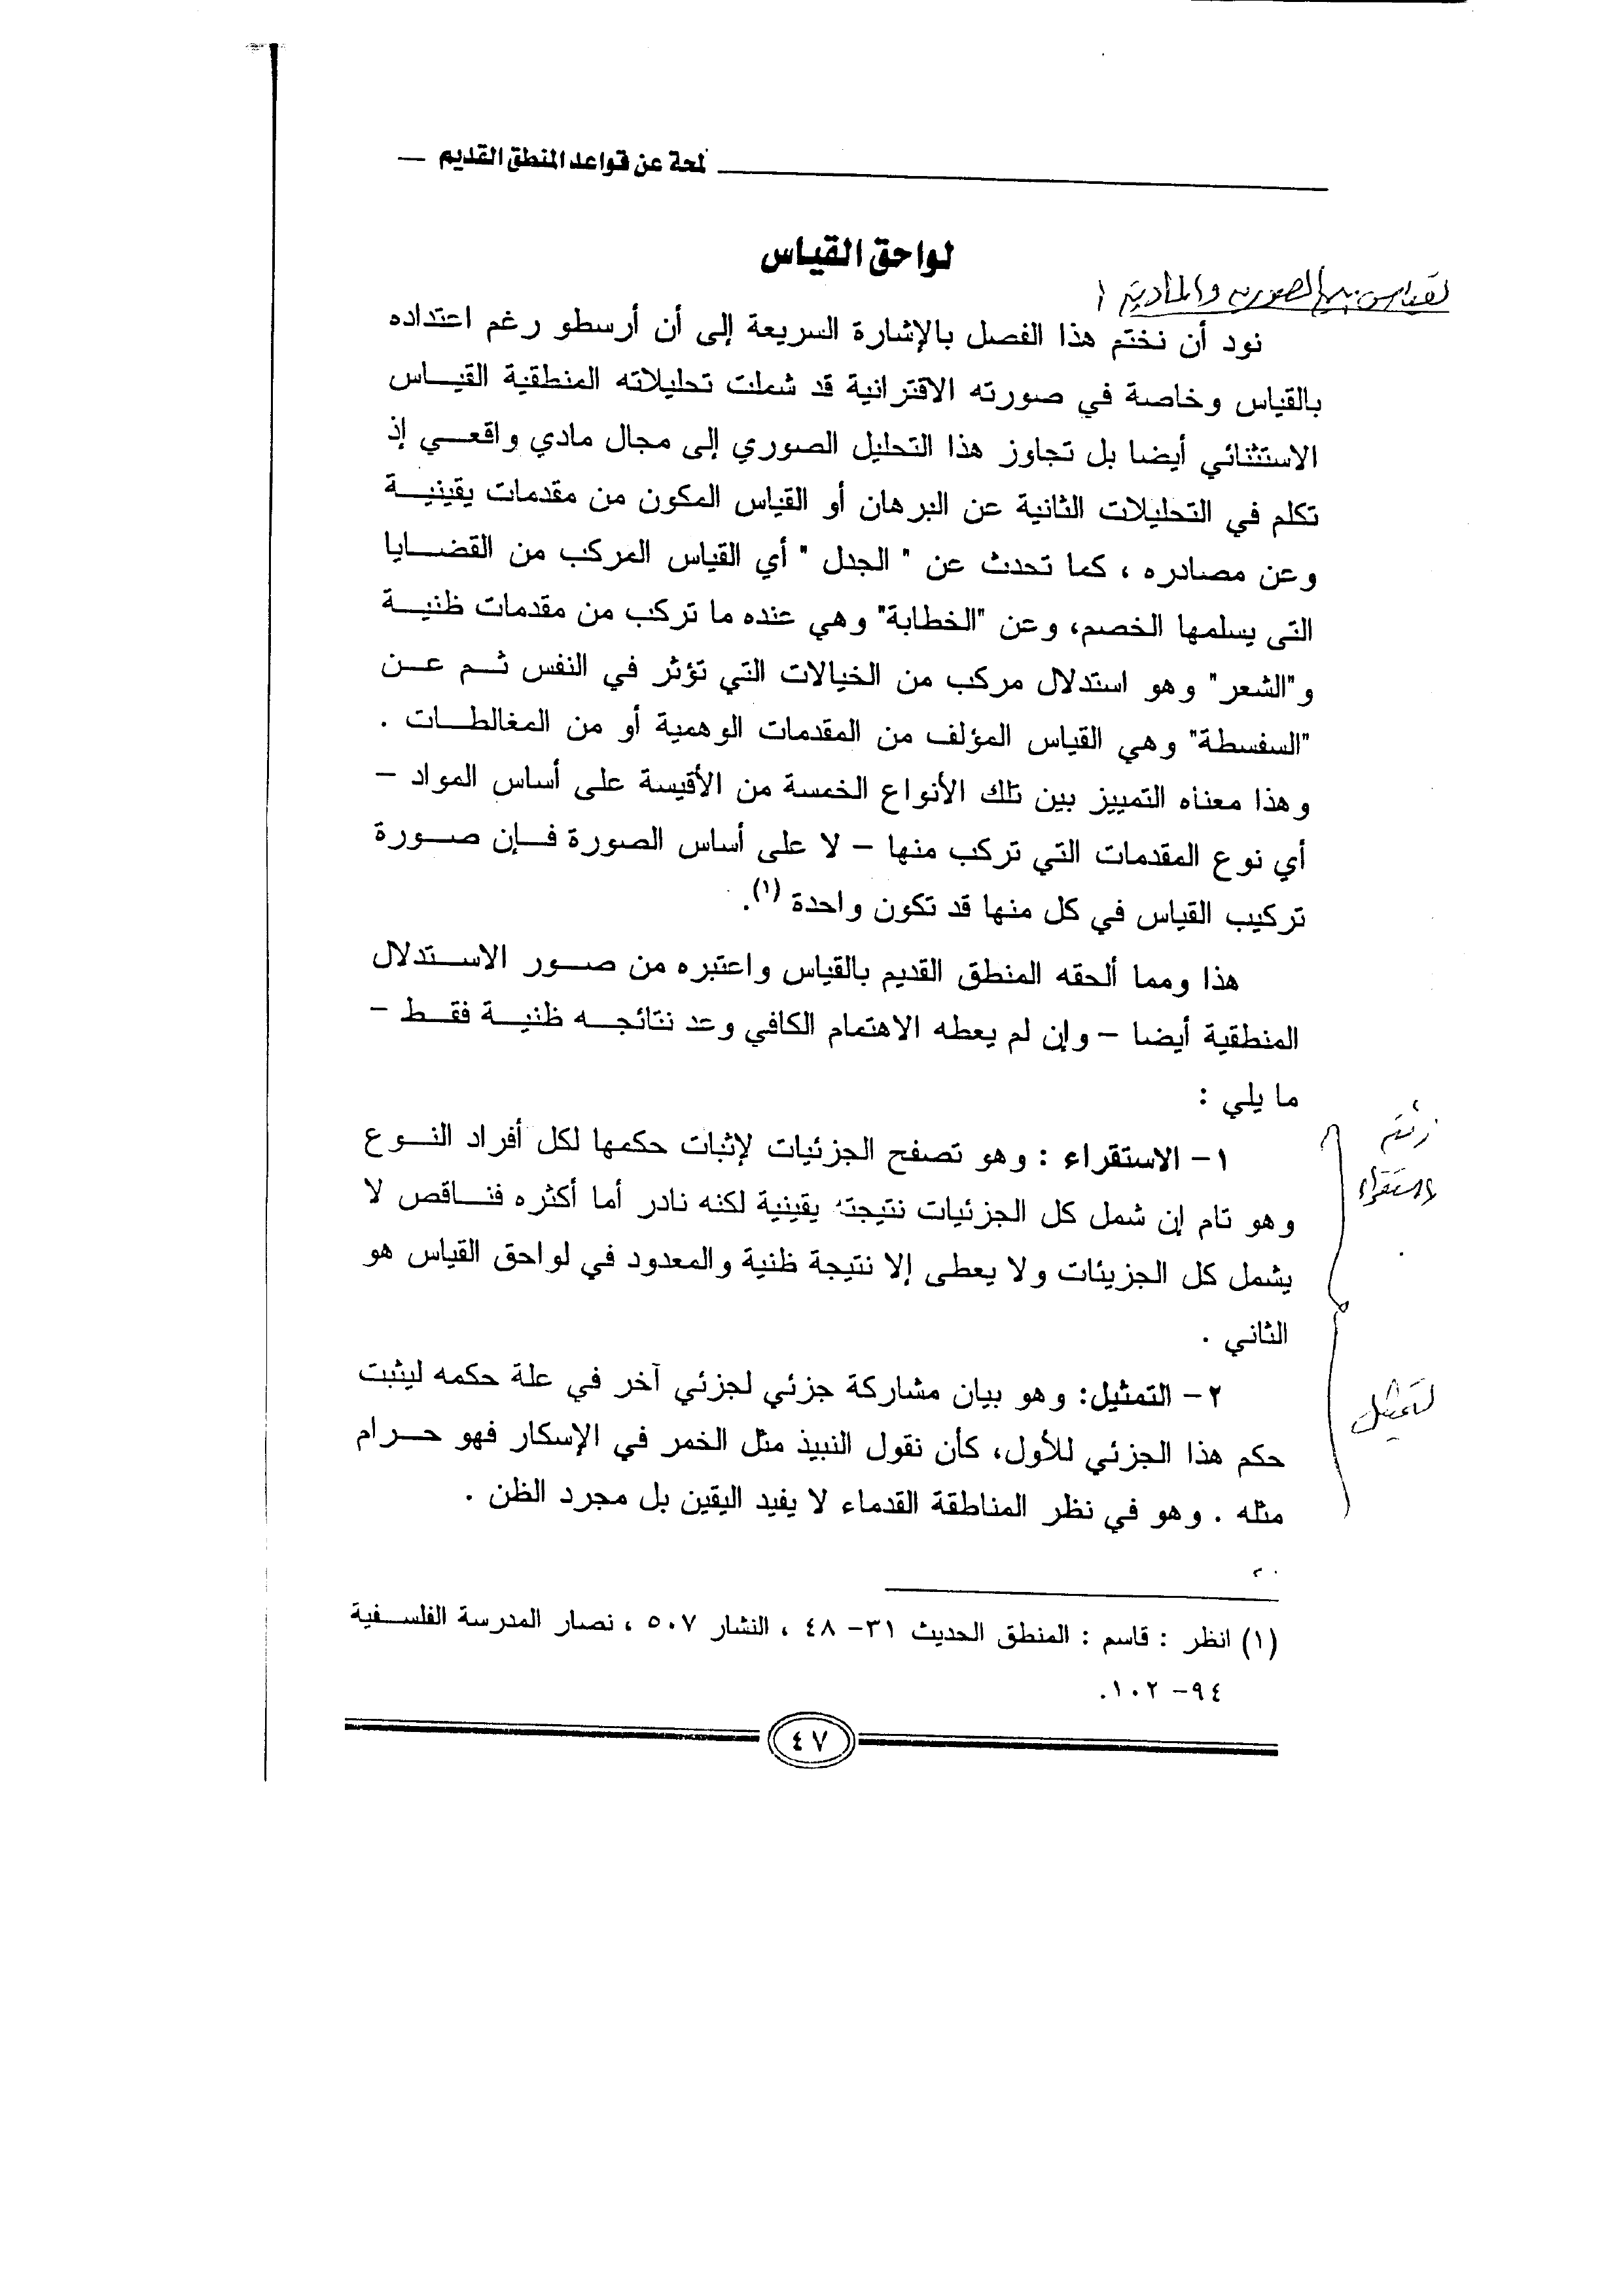 لمحة عن قواعد المنطق القديم
لواحق القياس
القياس بين الصورية والمادية
نود أن نختم هذا الفصل بالإشارة السريعة إلى أن أرسطو رغم اعتداده
بالقياس وخاصة في صورته الاقترانية قد شملت تحليلاته المنطقية القياس
الاستثنائي أيضا بل تجاوز هذا التحليل الصوري إلى مجال مادي واقعي إذ
تكلم في التحليلات الثانية عن البرهان أو القياس المكون من مقدمات يقينية
وعن مصادره ، كما تحدث عن " الجدل " أي القياس المركب من القضايا
التى يسلمها الخصم، وعن "الخطابة" وهي عنده ما تركب من مقدمات ظنية
و"الشعر" وهو استدلال مركب من الخيالات التي تؤثر في النفس ثم عن
"السفسطة" وهي القياس المؤلف من المقدمات الوهمية أو من المغالطات .
وهذا معناه التمييز بين تلك الأنواع الخمسة من الأقيسة على أساس المواد –
أي نوع المقدمات التي تركب منها – لا على أساس الصورة فإن صورة
تركيب القياس في كل منها قد تكون واحدة (١).
هذا ومما ألحقه المنطق القديم بالقياس واعتبره من صور الاستدلال
المنطقية أيضا – وإن لم يعطه الاهتمام الكافي وعد نتائجه ظنية فقط –
ما يلي :
١- الاستقراء : وهو تصفح الجزئيات لإثبات حكمها لكل أفراد النوع
وهو تام إن شمل كل الجزئيات نتيجته يقينية لكنه نادر أما أكثره فناقص لا
يشمل كل الجزيئات ولا يعطى إلا نتيجة ظنية والمعدود في لواحق القياس هو
الثاني .
والاستقراء
٢- التمثيل: وهو بيان مشاركة جزئي لجزئي آخر في علة حكمه ليثبت
حكم هذا الجزئي للأول، كأن نقول النبيذ مثل الخمر في الإسكار فهو حرام
مثله . وهو في نظر المناطقة القدماء لا يفيد اليقين بل مجرد الظن .
التمثيل
(١) انظر : قاسم : المنطق الحديث ٣١- ٤٨ ، النشار ٥٠٧ ، نصار المدرسة الفلسفية
٩٤- ١٠٢.
٤٧